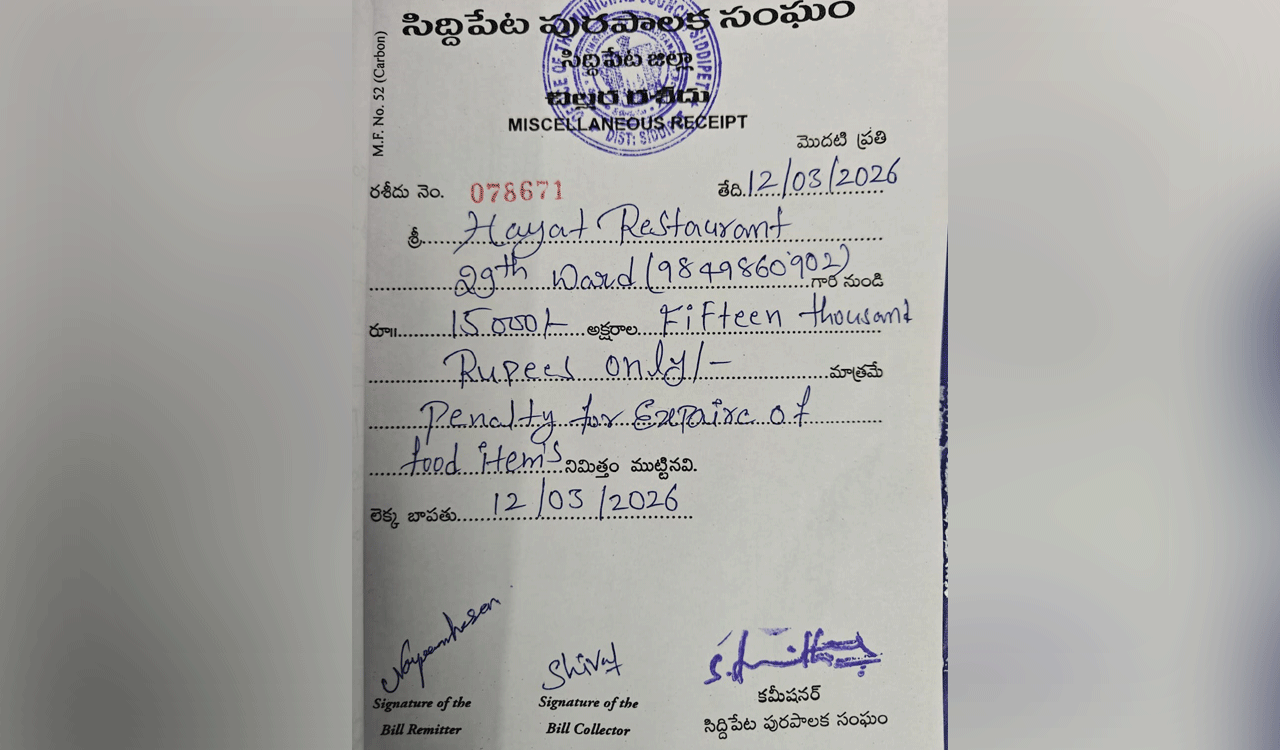 సిద్దిపేట పురపాలక సంఘం
సిద్దిపేట జిల్లా
చిల్లర రశీదు
MISCELLANEOUS RECEIPT
M.F. No. 52 (Carbon)
మొదటి ప్రతి
రశీదు నెం. 078671 తేది.12/03/2026
శ్రీ Hayat Restaurant
29th Ward (9849860902) గారి నుండి
రూ॥ 15000/- అక్షరాల Fifteen thousant
Rupees only/- మాత్రమే
Penalty for Expaire of
food items నిమిత్తం ముట్టినవి.
లెక్క బాపతు 12/03/2026
Shivat
Signature of the
Bill Remitter
Signature of the
Bill Collector
కమీషనర్
సిద్దిపేట పురపాలక సంఘం